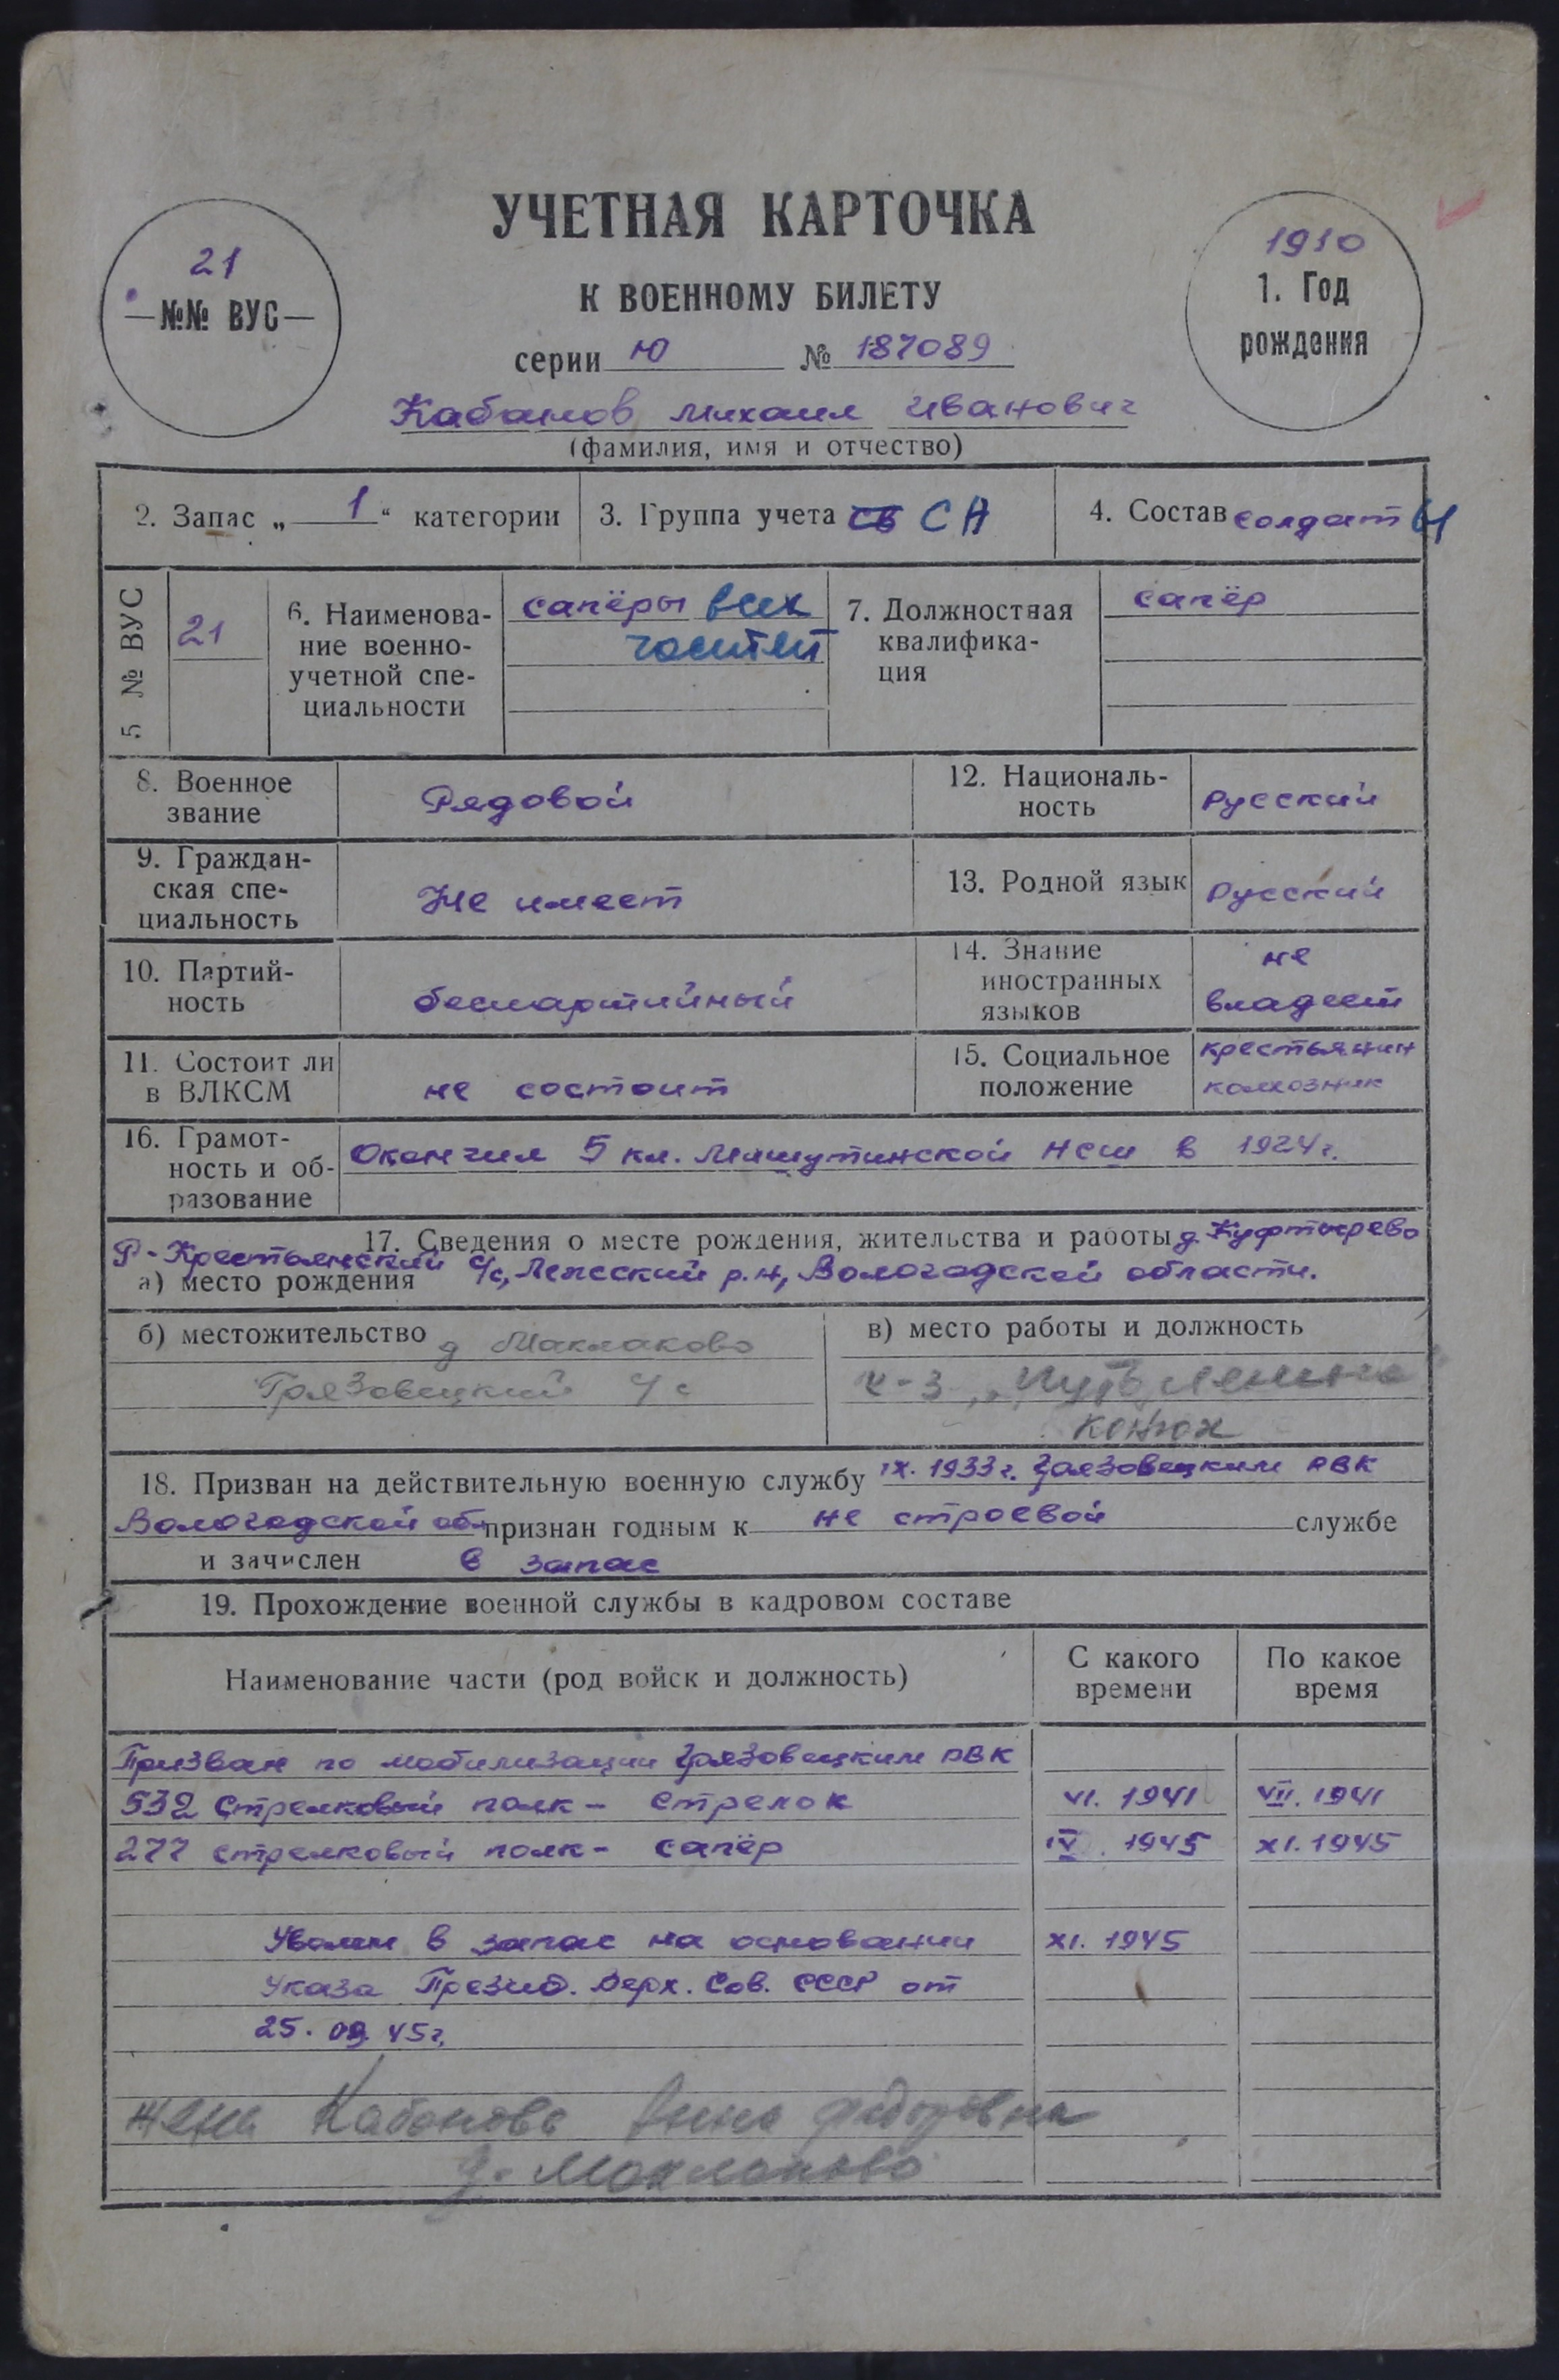 УЧЕТНАЯ КАРТОЧКА
К ВОЕННОМУ БИЛЕТУ
21
—№№ ВУС—
1910
1. Год
рождения
серии Ю № 187089
Кабанов Михаил Иванович
(фамилия, имя и отчество)
2. Запас „ 1 “ категории
3. Группа учета св СА
4. Состав солдаты
5 № ВУС
21
6. Наименова-
ние военно-
учетной спе-
циальности
сапёры всех
частей
7. Должностная
квалифика-
ция
сапёр
8. Военное
звание
Рядовой
12. Националь-
ность
Русский
9. Граждан-
ская спе-
циальность
Не имеет
13. Родной язык
Русский
10. Партий-
ность
беспартийный
14. Знание
иностранных
языков
не
владеет
11. Состоит ли
в ВЛКСМ
не состоит
15. Социальное
положение
крестьянин
колхозник
16. Грамот-
ность и об-
разование
Окончил 5 кл. НСШ в 1924г.
17. Сведения о месте рождения, жительства и работы д. Куфтырево
Р-Крестьянский с/с, Лежский р.н, Вологодской области.
а) место рождения
б) местожительство д Маклаково
Грязовецкий с/с
в) место работы и должность
к-з „Путь Ленина
конюх
18. Призван на действительную военную службу IX. 1933г. Грязовецким РВК
Вологодской обл признан годным к не строевой службе
и зачислен в запас
19. Прохождение военной службы в кадровом составе
Наименование части (род войск и должность)
С какого
времени
По какое
время
Призван по мобилизации Грязовецким РВК
532 стрелковый полк - стрелок VI. 1941 VII. 1941
277 стрелковый полк - сапёр IV. 1945 XI. 1945
Уволен в запас на основании XI. 1945
Указа Презид. Верх. Сов. СССР от
25. 09. 45г.
жена Кабанова Анна Федоровна
д. Маклаково